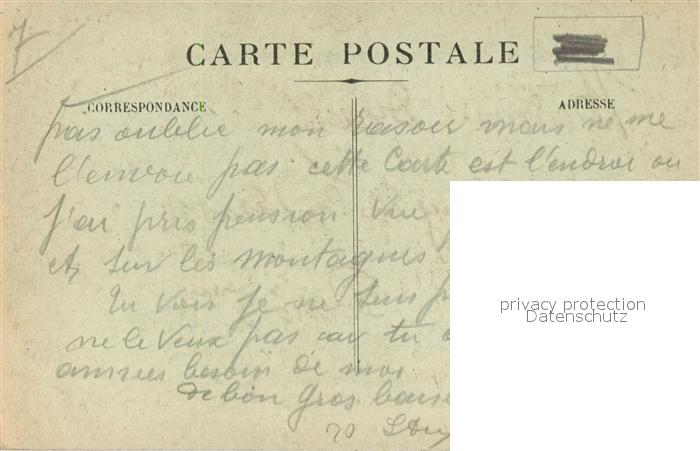 7
CARTE POSTALE
CORRESPONDANCE
ADRESSE
pas oublié mon rasoir mais ne me
l'envoie pas cette Carte est l'endroi ou
j'ai pris pension vue
et sur les montagnes
Tu vois je ne suis
ne le veux pas car tu
besoin de moi
de bon Gros
20
privacy protection
Datenschutz